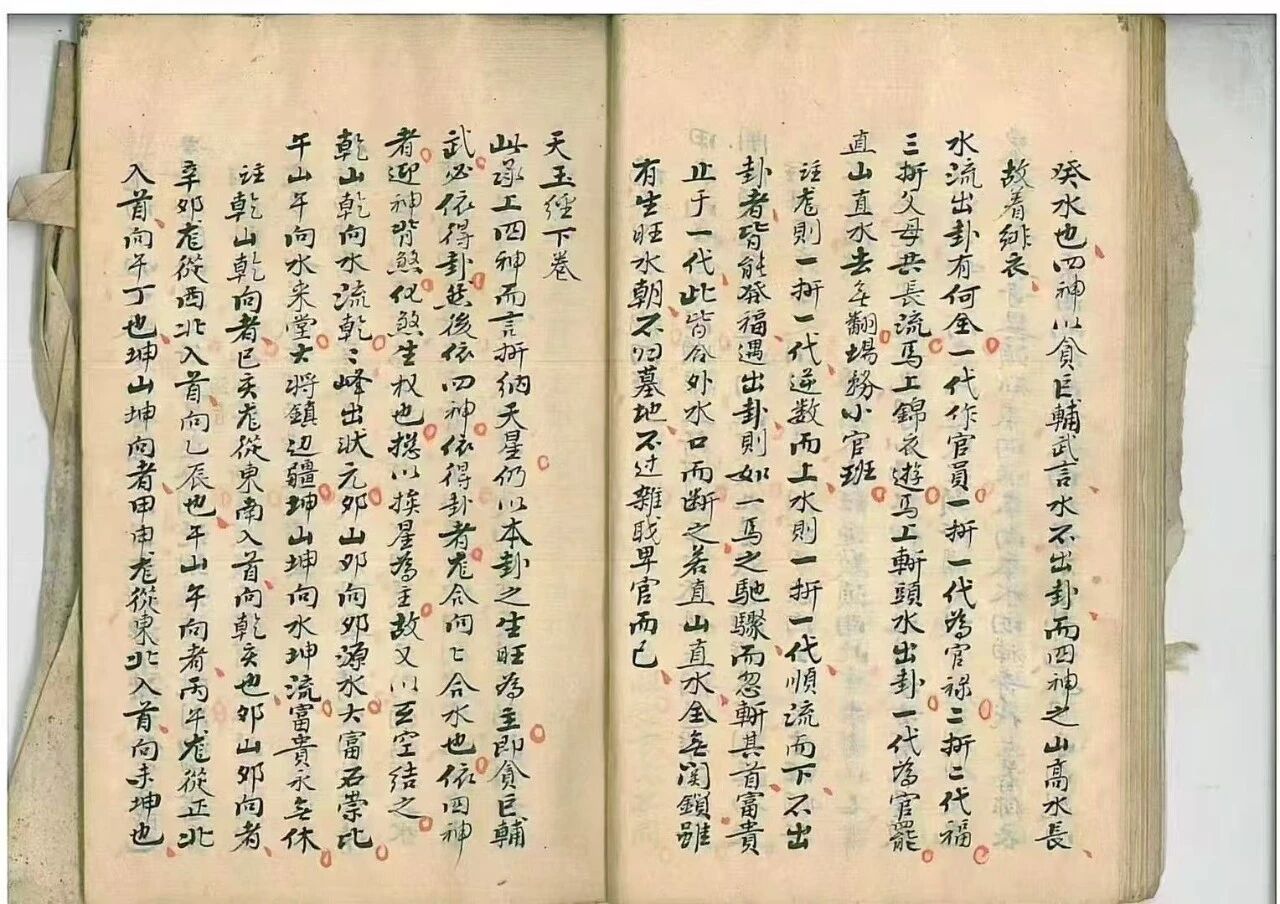 癸水也四神以貪巨輔武言水不出卦而四神之山高水長
故着緋衣
水流出卦有何全一代作官員一折一代為官祿二折二代福
三折父母共長流馬上錦衣遊馬上斬頭水出卦一代為官罷
直山直水去無翻塲務小官班
註龙則一折一代逆数而上水則一折一代順流而下不出
卦者皆能發福遇出卦則如一馬之馳驟而忽斬其首富貴
止于一代此皆合外水口而断之若直山直水全無関鎖雖
有生旺水朝不归墓地不过雜戝卑官而已
天玉經下巻
此承上四神而言折納天星仍以本卦之生旺為主即貪巨輔
武必依得卦然後依四神依得卦者龙合向〻合水也依四神
者迎神背煞化煞生权也揔以挨星為主故又以五空結之
乾山乾向水流乾〻峰出状元卯山卯向卯源水大富石崇比
午山午向水来堂大将鎮边疆坤山坤向水坤流富貴永無休
註乾山乾向者巳亥龙從東南入首向乾亥也卯山卯向者
辛卯龙從西北入首向乙辰也午山午向者丙午龙從正北
入首向午丁也坤山坤向者甲申龙從東北入首向未坤也